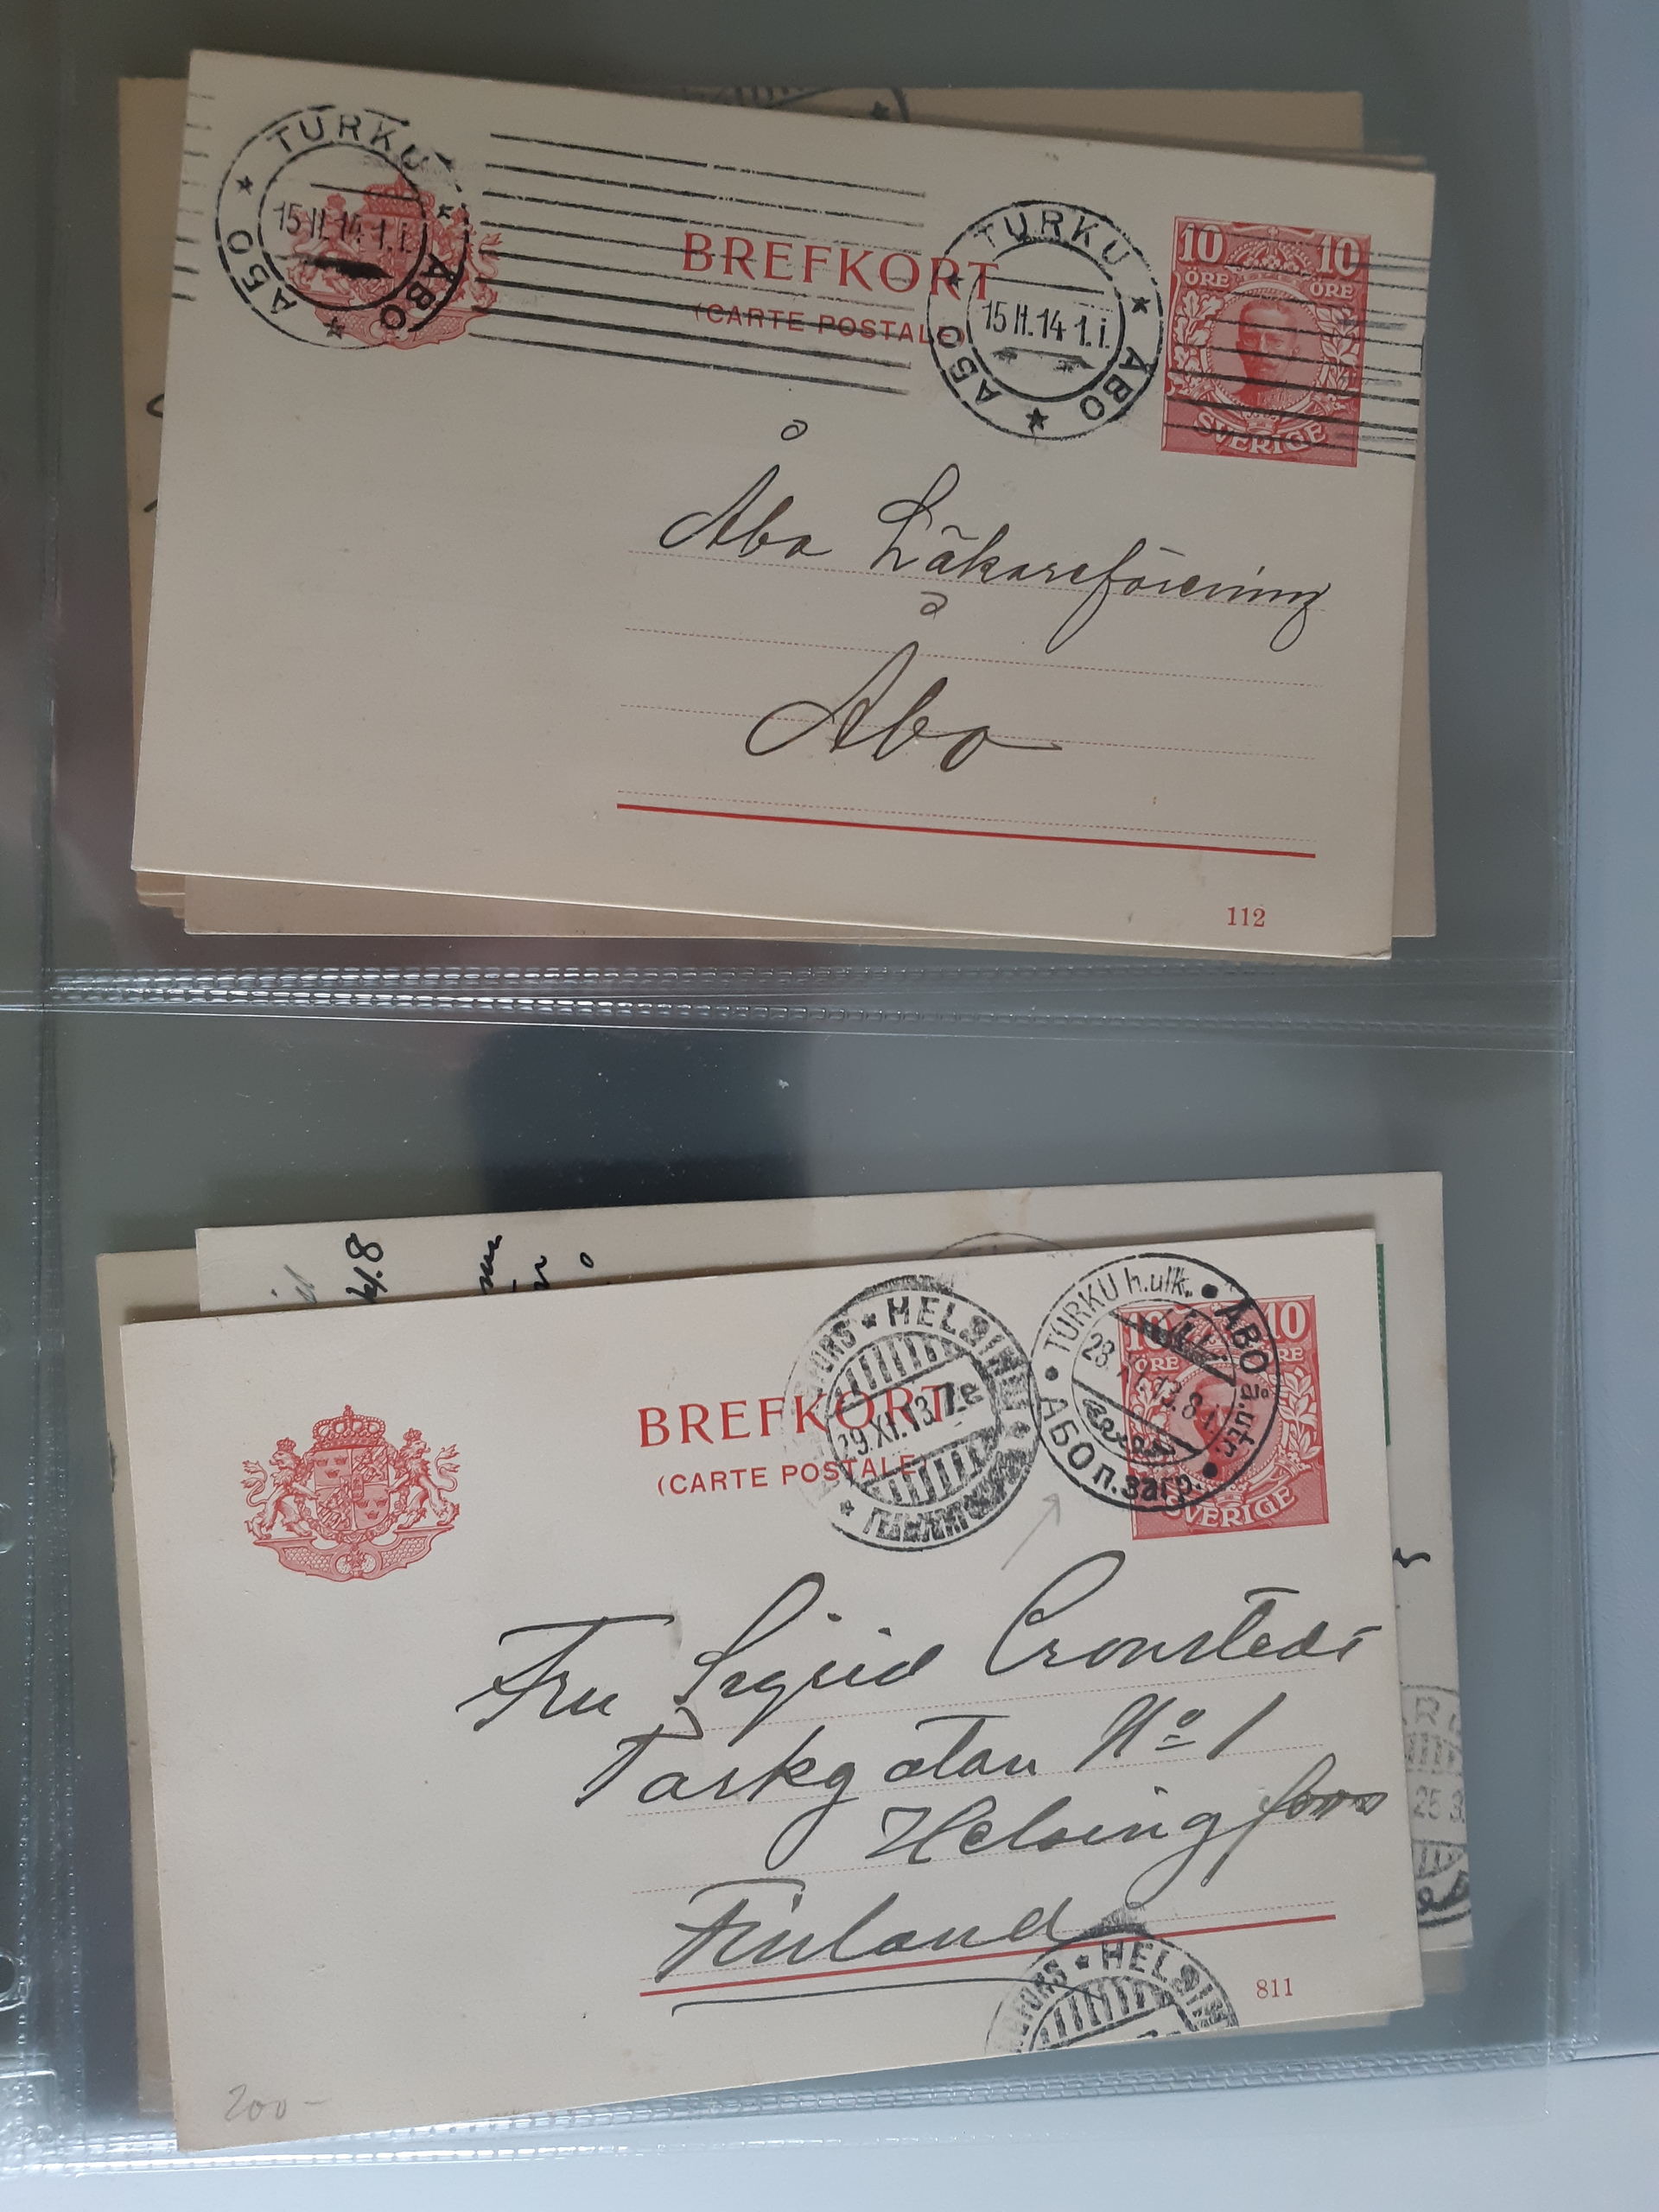 TURKU ★ ÅBO ★ АБО ★
15.II.14.1.i.
BREFKORT
(CARTE POSTALE)
TURKU ★ ÅBO ★ АБО ★
15.II.14 1.i.
10 10
ÖRE ÖRE
SVERIGE
Åbo Läkareförening
Åbo
112
4.8
BREFKORT
(CARTE POSTALE)
HELSIN
29.XI.13.7e
TURKU h.ulk. • ÅBO p.utr. • АБО п.загр. •
10 10
ÖRE ÖRE
SVERIGE
Fru Sigrid Cronstedt
Parkgatan No 1
Helsingfors
Finland
HELSIN
811
25
200-